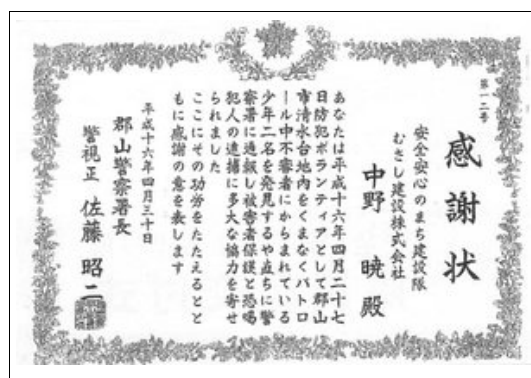 第一二号
感謝状
安全安心のまち建設隊
むさし建設株式会社
中野 暁 殿
あなたは平成十六年四月二十七
日防犯ボランティアとして郡山
市清水台地内をくまなくパトロ
ール中不審者にからまれている
少年二名を発見するや直ちに警
察署に通報し被害者保護と恐喝
犯人の逮捕に多大な協力を寄せ
られました
ここにその功労をたたえるとと
もに感謝の意を表します
平成十六年四月三十日
郡山警察署長
警視正 佐藤 昭二